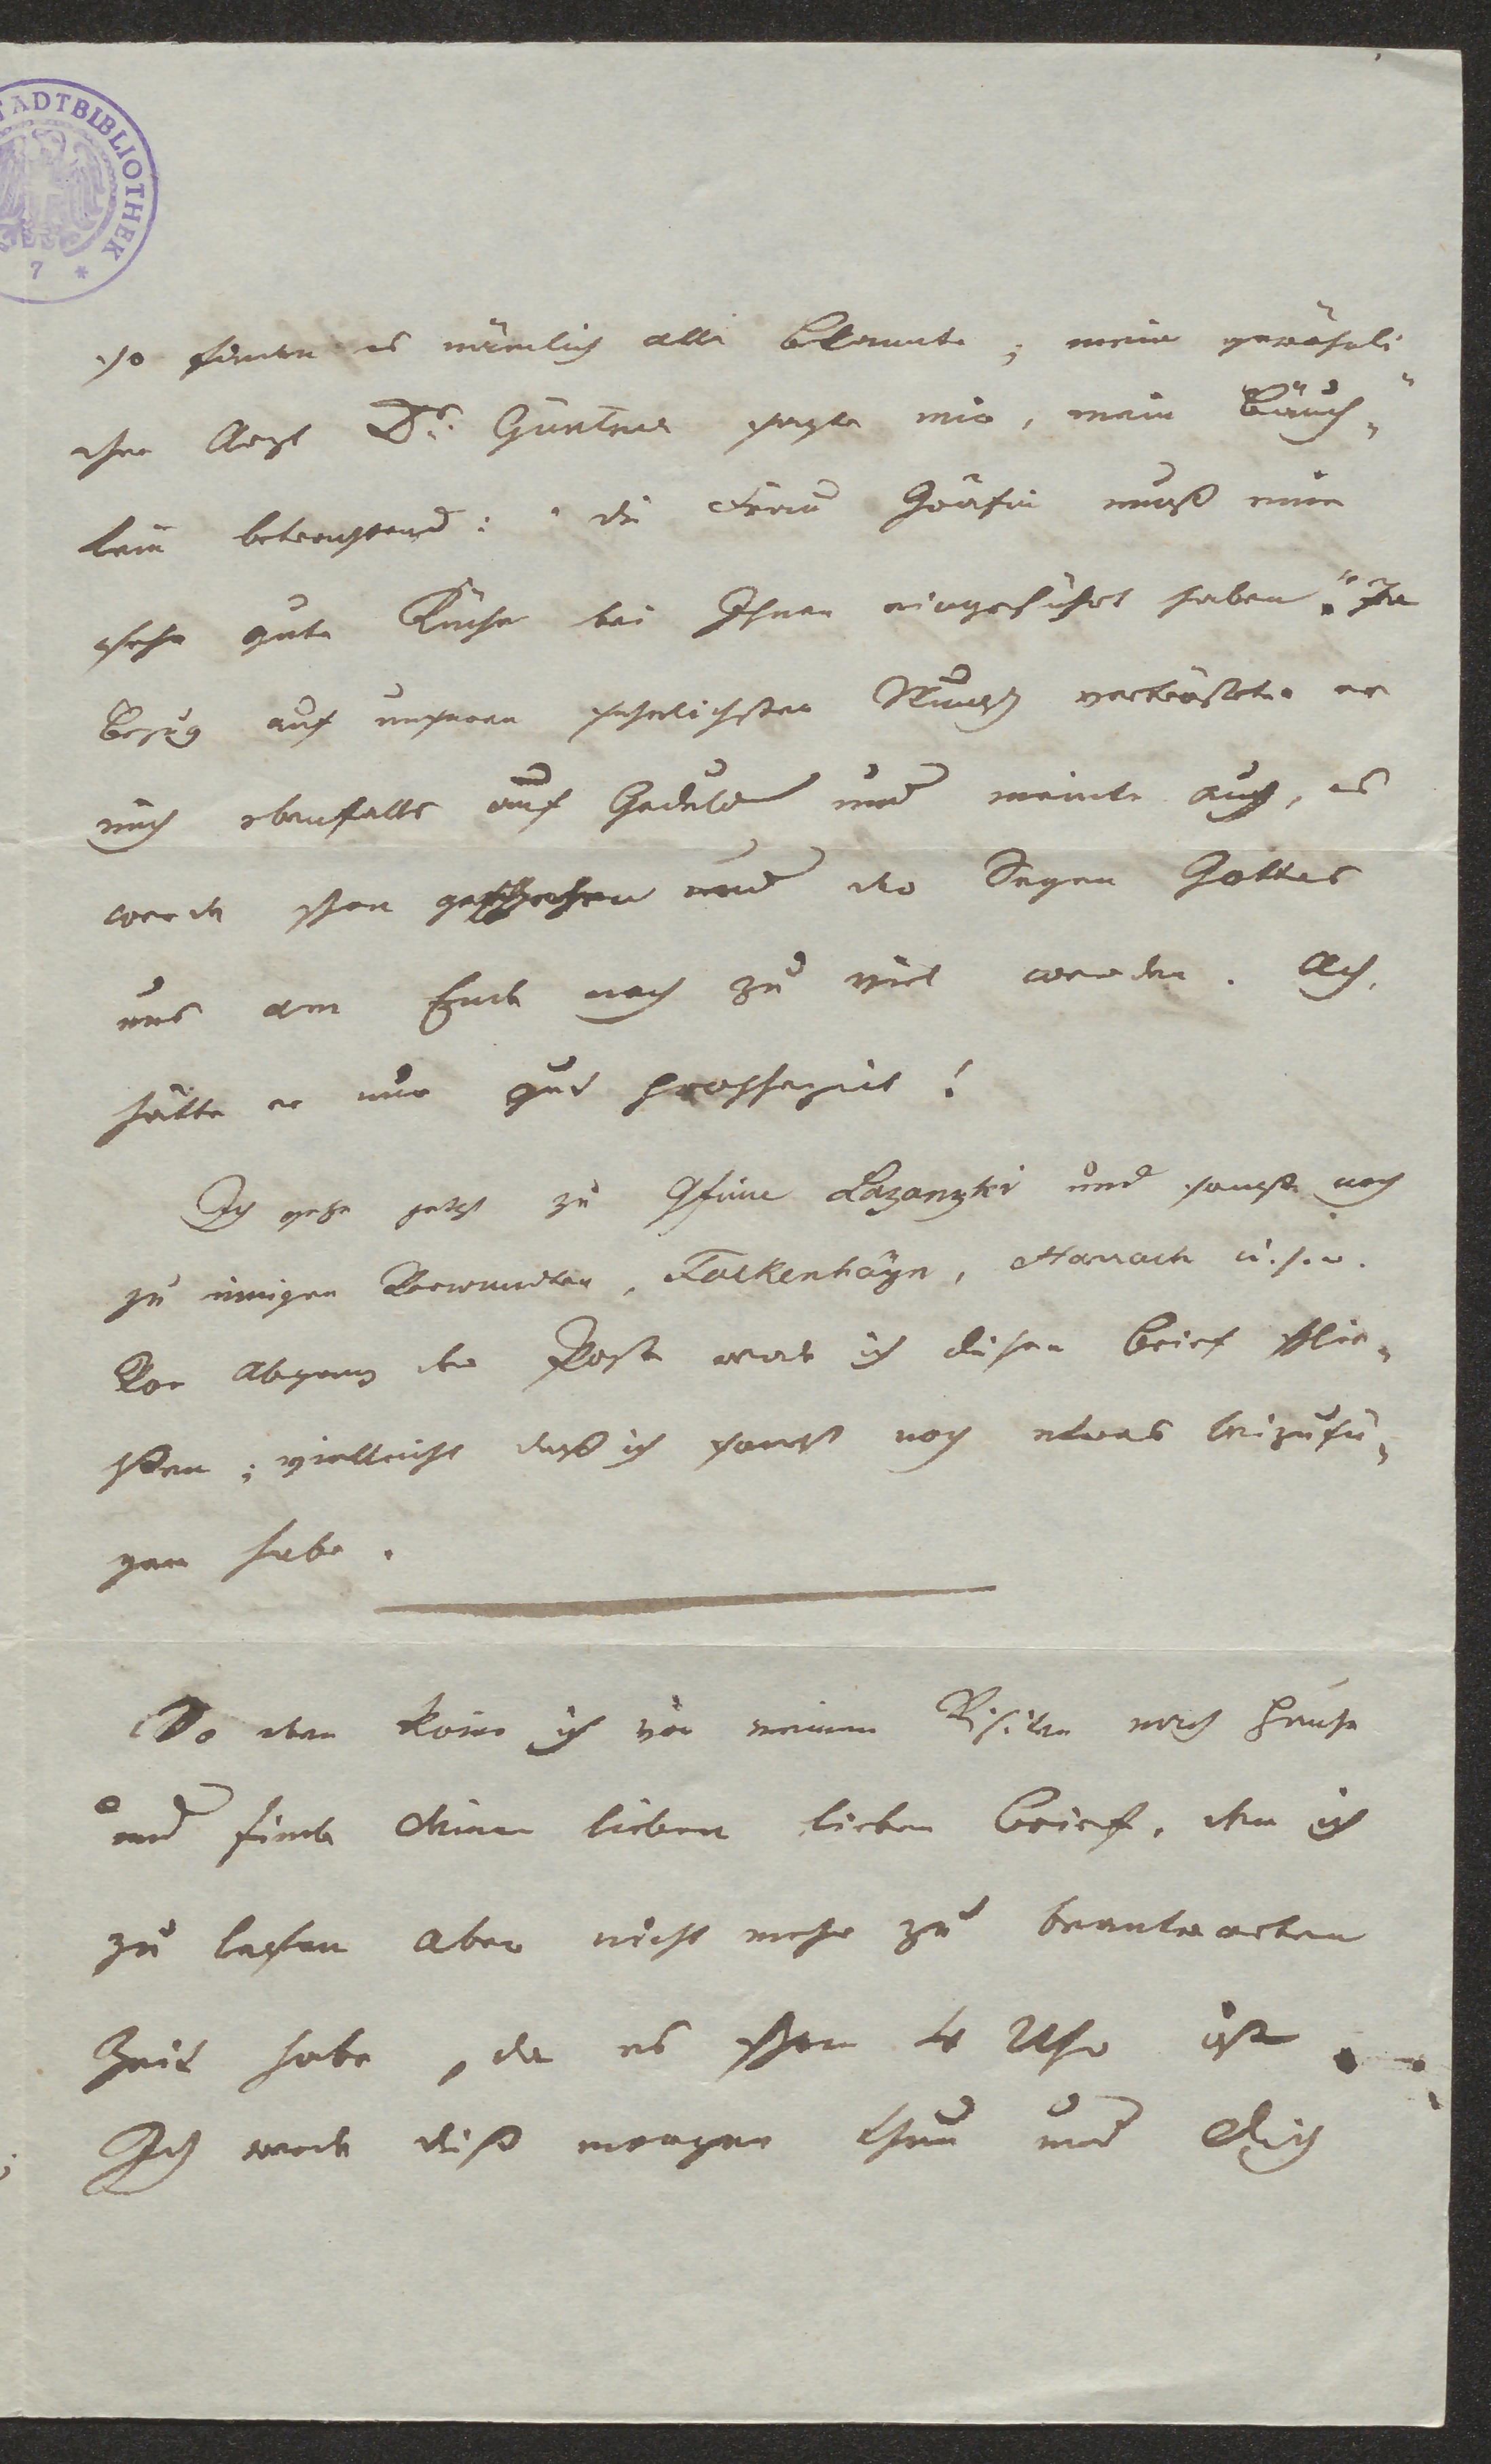 TADTBIBLIOTHEK
7 *
so finden es nämlich alle Bekannte; mein gewöhnli„
cher Arzt Dr. Güntner sagte mir, mein Bäuch„
lein betrachtend: „die Frau Gräfin muß eine
sehr gute Küche bei Ihnen eingeführt haben." In
Bezug auf unseren sehnlichsten Wunsch vertröstete er
mich ebenfalls auf Geduld und meinte auch, es
werde schon geschehen und der Segen Gottes
uns am Ende noch zu viel werden. Ach,
hätte er nur gut prophezeit!
Ich gehe jetzt zu Lazanzki und sonst noch
zu einigen Verwandten, Falkenhayn, Harrach u.s.w.
Vor Abgang der Post werde ich diesen Brief schlie„
ßen; vielleicht daß ich sonst noch etwas beizufü„
gen habe.
So eben komme ich von meinen Visiten nach Hause
und finde deinen lieben lieben Brief, den ich
zu lesen aber nicht mehr zu beantworten
Zeit habe, da es schon 4 Uhr ist.
Ich werde dieß morgen thun und Dich